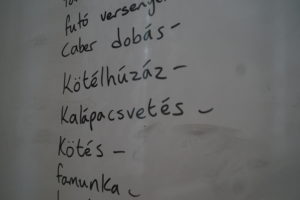 futó versenye
Caber dobás –
Kötélhúzáz –
Kalápacsvetés ~
Kötés –
famunka ~